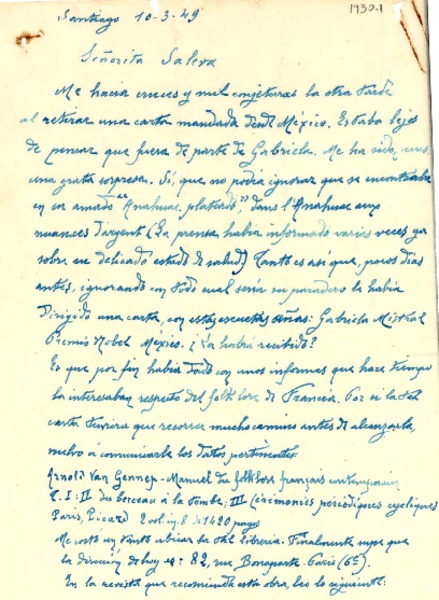 1930.1
Santiago 10-3-49
Señorita Saleva
Me hacía cruces y mil conjeturas la otra tarde
al retirar una carta mandada desde México. Estaba lejos
de pensar que fuera de parte de Gabriela. Me ha sido, pues,
una grata sorpresa. Sí, que no podía ignorar que se encontraba
en su amado "Anahuac plateado", dans l'Anahuac aux
nuances d'argent (La prensa había informado varias veces ya
sobre su delicado estado de salud) Tanto es así que, pocos días
antes, ignorando con todo cual sería su paradero la había
dirigido una carta, con estas escuetas señas: Gabriela Mistral
Premio Nobel Mexico. ¿La habrá recibido?
Es que por fin había dado con unos informes que hace tiempo
la interesaban respecto del folklore de Francia. Por si la tal
carta tuviera que recorrer mucho camino antes de alcanzarla,
vuelvo a comunicarle los datos pertinentes:
Arnold Van Gennep - Manuel du folklore français contemporain
T. I: II du berceau à la tombe; III (cérémonies périodiques cycliques
Paris, Picard 2 vol. in 8 de 1420 pages
Me costó un tanto ubicar la tal librería. Finalmente supe que
la dirección de hoy es: 82, rue Bonaparte - Paris (6e).
En la revista que recomienda esta obra, leo lo siguiente: